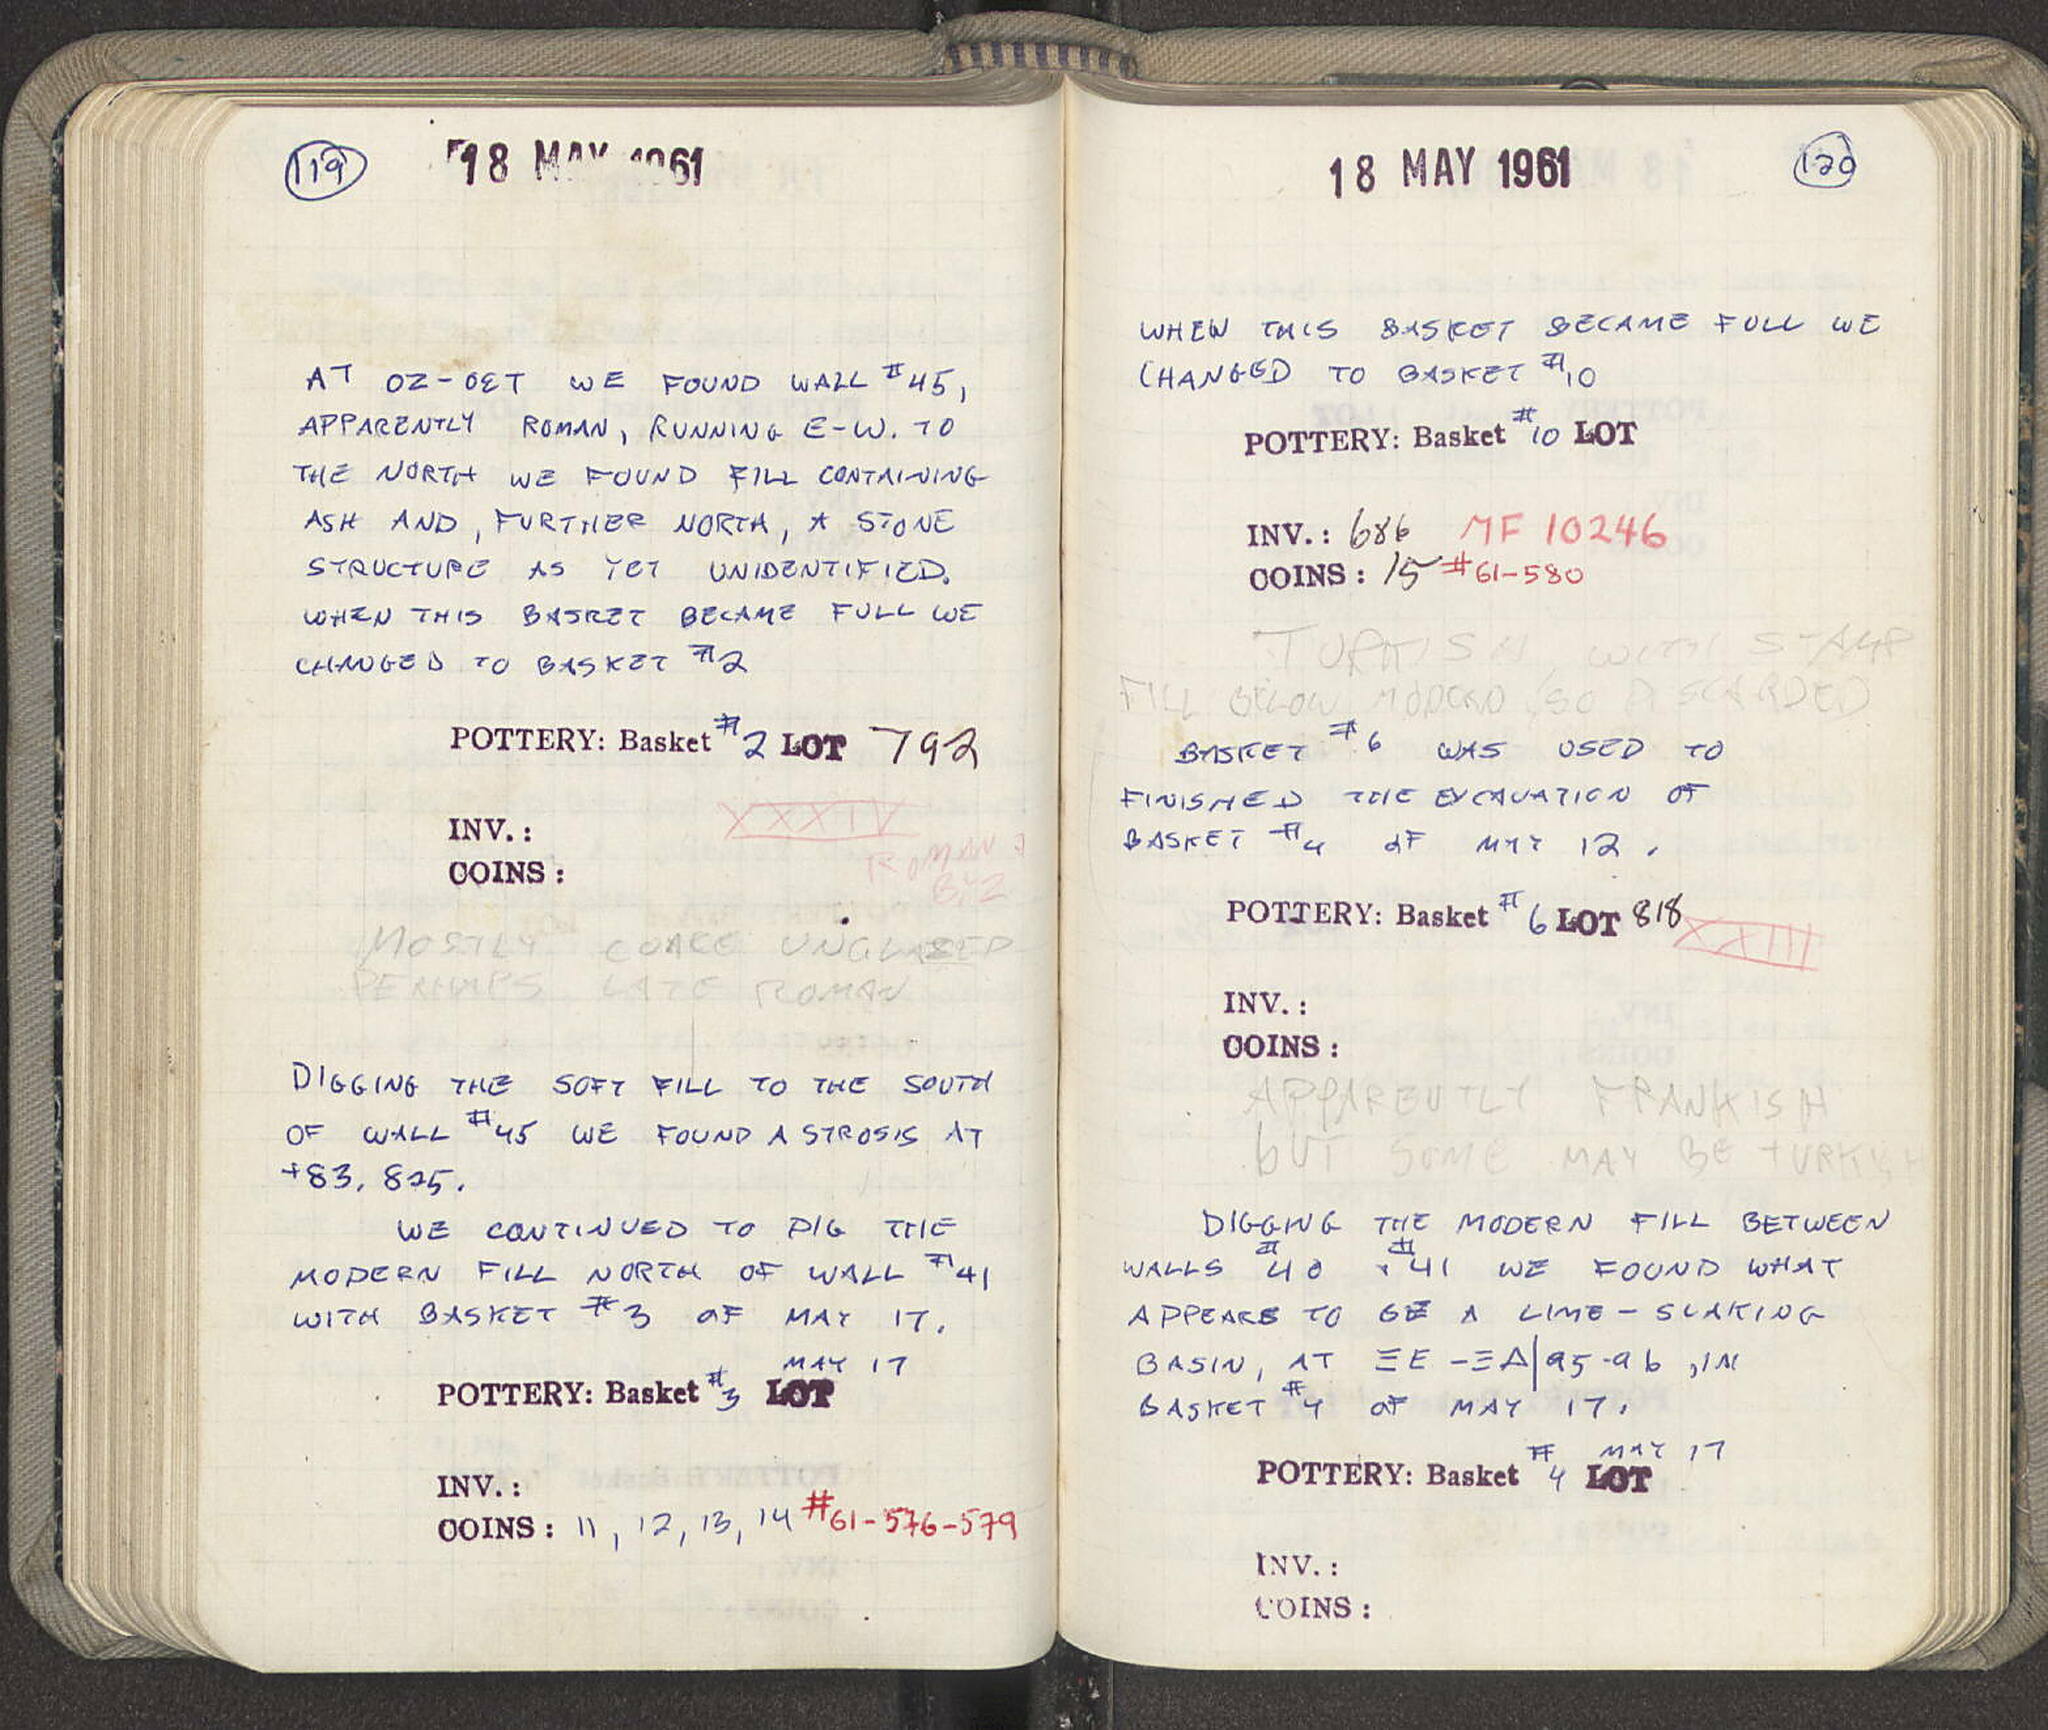 119
18 MAY 1961
AT OZ-OET WE FOUND WALL #45,
APPARENTLY ROMAN, RUNNING E-W. TO
THE NORTH WE FOUND FILL CONTAINING
ASH AND, FURTHER NORTH, A STONE
STRUCTURE AS YET UNIDENTIFIED.
WHEN THIS BASKET BECAME FULL WE
CHANGED TO BASKET #2
POTTERY: Basket #2 LOT 792
XXXIV
INV.:
ROMAN &
BYZ
COINS:
MOSTLY COARE UNGLAZED
PERHAPS LATE ROMAN
DIGGING THE SOFT FILL TO THE SOUTH
OF WALL #45 WE FOUND A STROSIS AT
+83.825.
WE CONTINUED TO DIG THE
MODERN FILL NORTH OF WALL #41
WITH BASKET #3 OF MAY 17.
MAY 17
POTTERY: Basket #3 LOT
INV.:
COINS: 11, 12, 13, 14 #61-576-579
18 MAY 1961
120
WHEN THIS BASKET BECAME FULL WE
CHANGED TO BASKET #10
POTTERY: Basket #10 LOT
INV.: 686 MF 10246
COINS: 15 #61-580
TURKISH, WITH STAMP
FILL BELOW MODERN, SO DISCARDED
BASKET #6 WAS USED TO
FINISHED THE EXCAVATION OF
BASKET #4 OF MAY 12.
POTTERY: Basket #6 LOT 818 XXIII
INV.:
COINS:
APPARENTLY FRANKISH
BUT SOME MAY BE TURKISH
DIGGING THE MODERN FILL BETWEEN
WALLS #40 & #41 WE FOUND WHAT
APPEARS TO BE A LIME-SLAKING
BASIN, AT ΞE-ΞΔ|95-96, IN
BASKET #4 OF MAY 17.
MAY 17
POTTERY: Basket #4 LOT
INV.:
COINS: